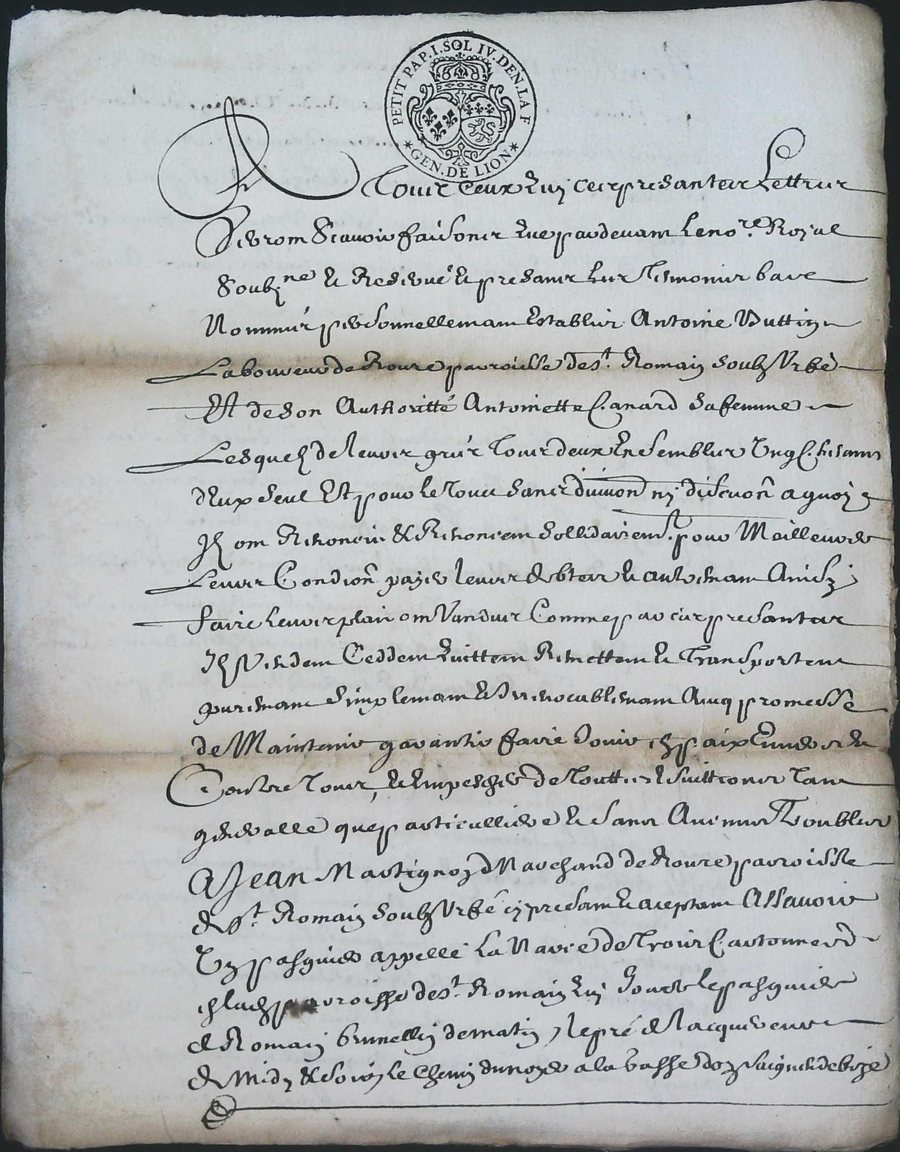 PETIT PAP. I. SOL IV. DEN. LA F
* GEN. DE LION *
A Tous Ceux quj ces presantes Lettres
Verront Scavoir faisons que pardevant le no.re Royal
Soub.ne & Reservé & presants les tesmoings bas
Nommés personnellemant Establis Antoine
Laboureur de Roure parroisse de s.t Romain soubz Urfé
Et de son Authoritté Antoinette sa femme
Lesquelz de leur gré tous deux Ensembles Ung
d'Eux seul Et pour le tout sans division nj discution a quoj
Ilz ont Renoncé & Renoncent sollidairemt pour Mailleure
Leurs Condion payer leurs debtes & autremant Ainsj
faire leur plait ont Vandus Comme par ces presantes
Ilz Vendent Ceddent quittent Remettent & Transportent
puremant Simplemant & Irrevocablemant Avecq promesse
de Maintenir garantir faire Jouir en paix Envers &
Contre tous, & Empescher de touttes Evictions tant
generalle que particulliere & sans Aucuns Troubles
A Jean Marchand de Roure parroisse
de s.t Romain soubz Urfé cy presant & aceptant Assavoir
Ung pasquier appellé La de
parroisse de s.t Romain quj Jouxte le pasquier
de Romain de matin, le pré de Jacques
de Midy & soir, le Chemin du a la